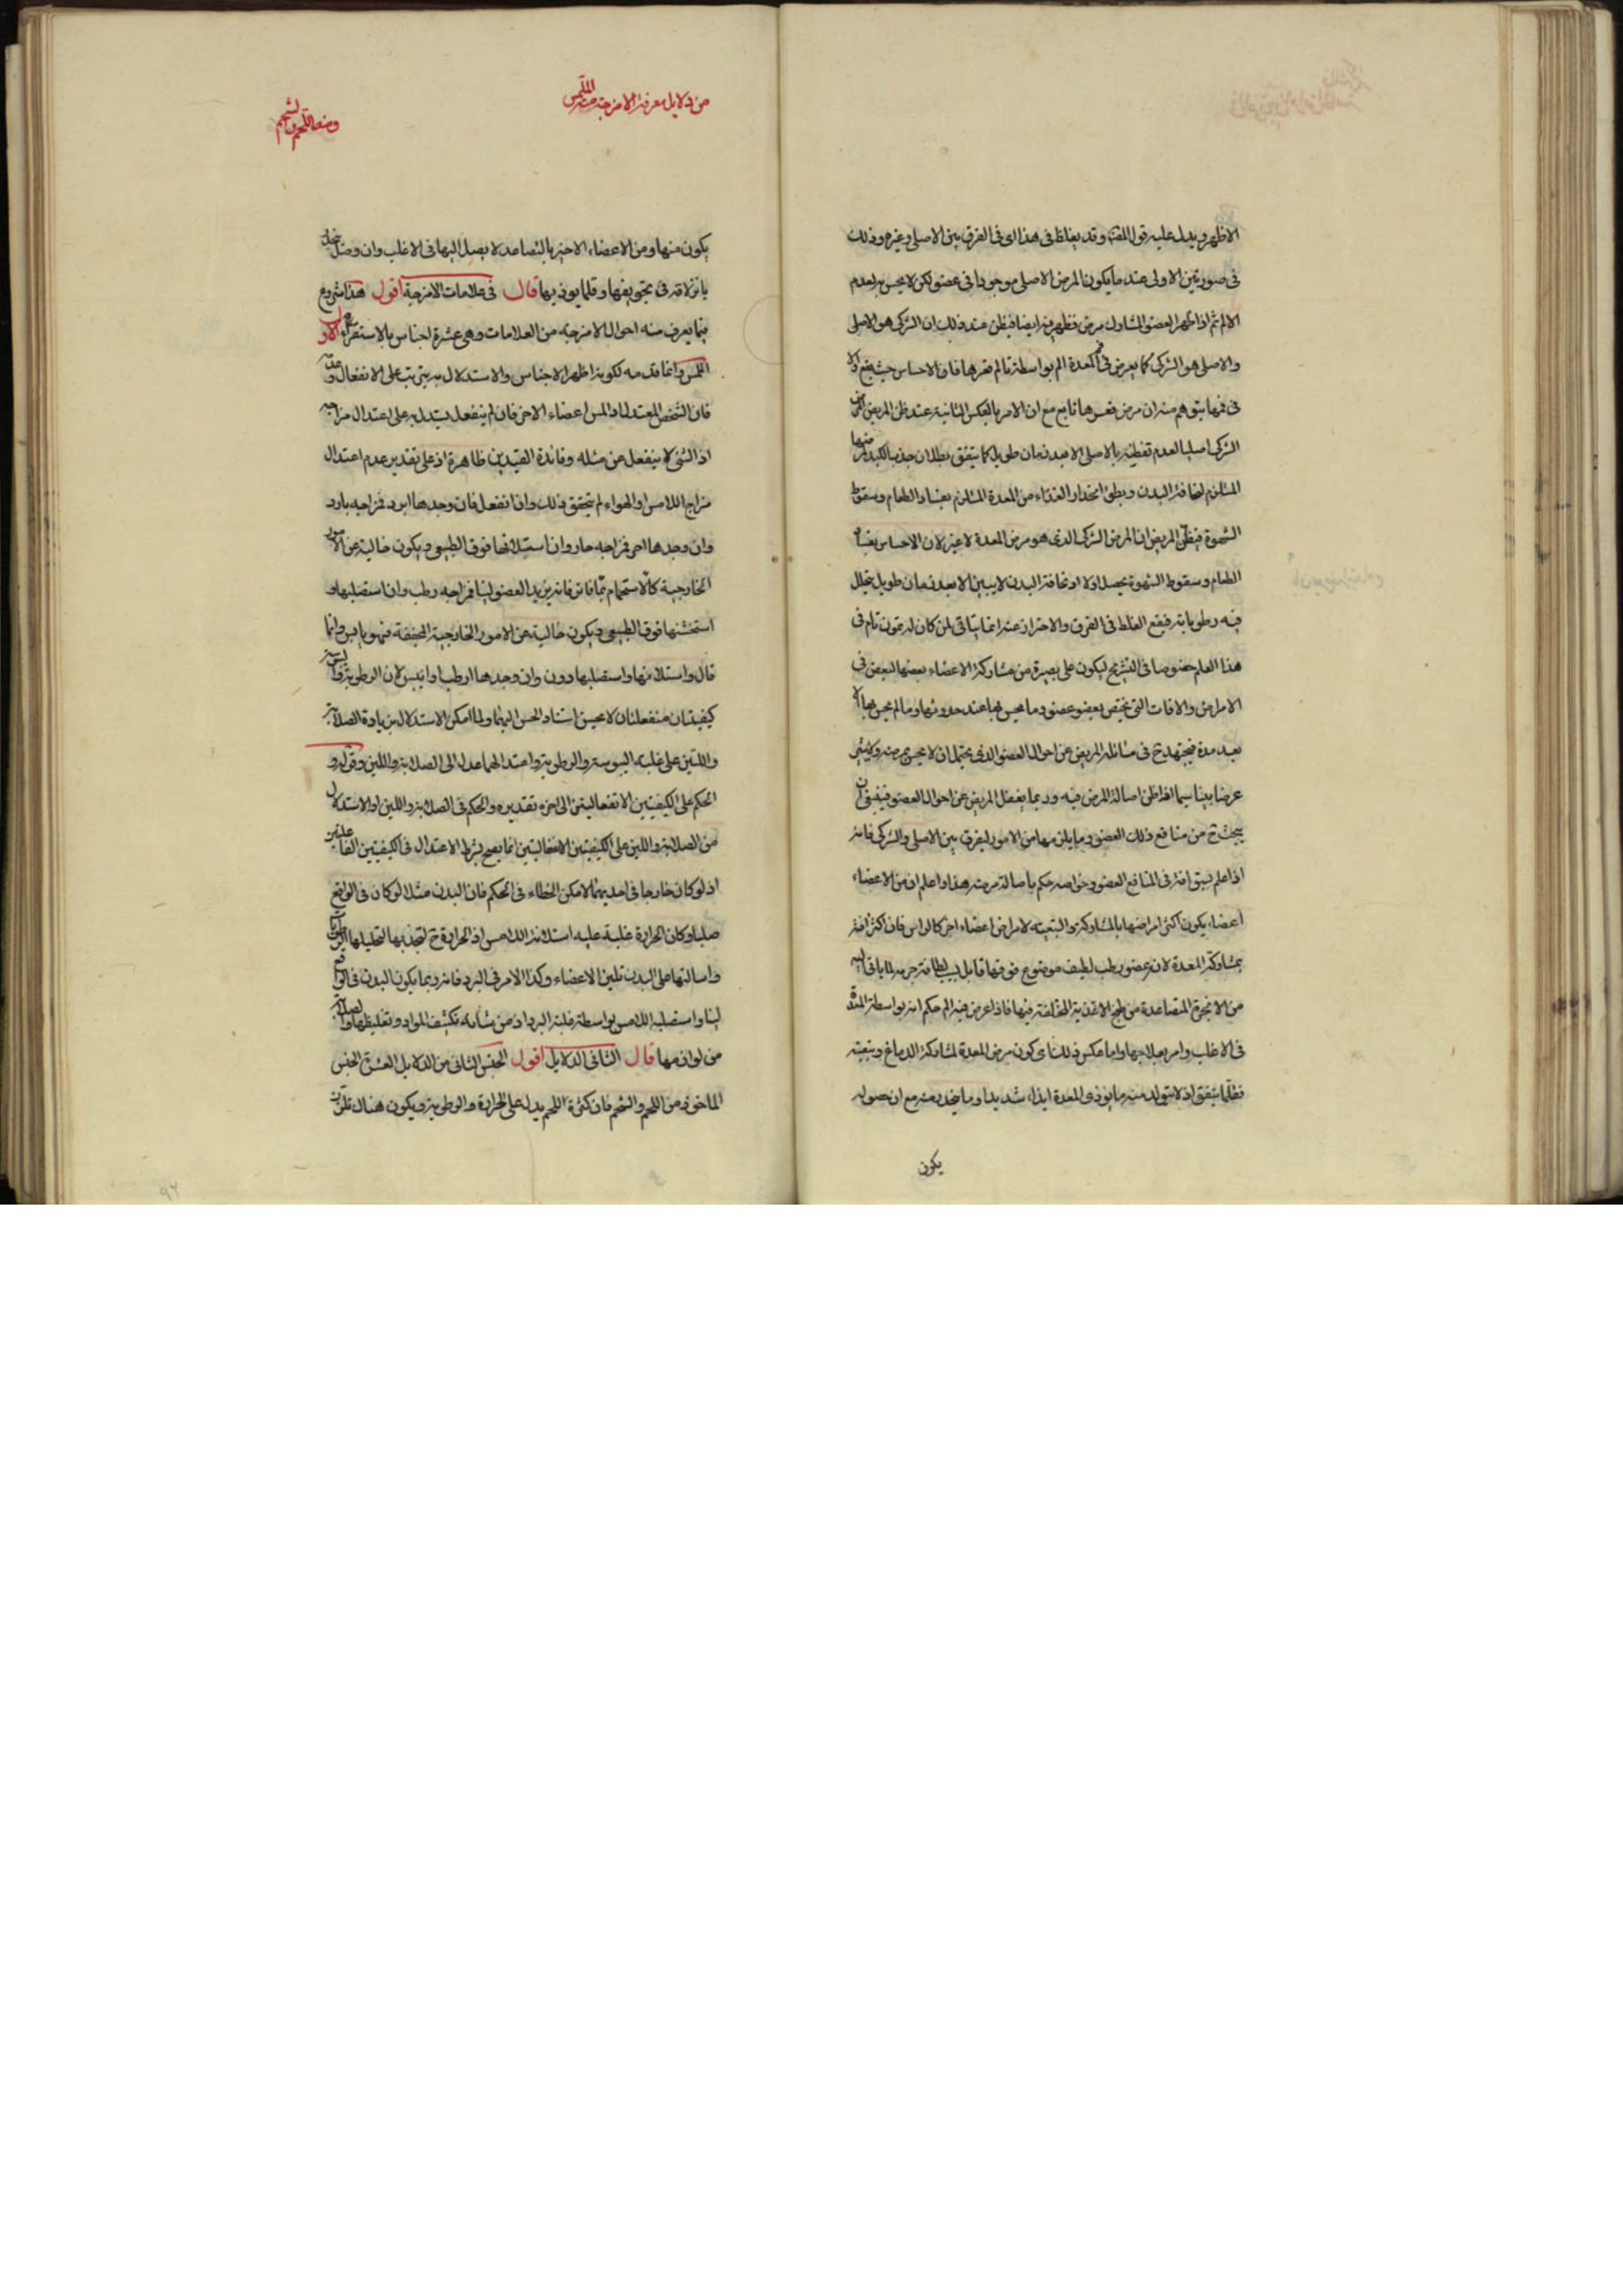 الاظهر ويدل عليه قول وقد يغلط فى هذا اى فى الفرق بين الاصلى وغيره وذلك
فى صورتين الاولى عند ما يكون المرض الاصلى موجودا فى عضو لكن لا يحس به لعدم
الالم ثم اذا ظهر العضو المشارك مرض فظهر فيه ايضا فيظن عند ذلك ان الشركى هو الاصلى
والاصلى هو الشركى كما يعرض فى فم المعدة الم بواسطة تالم قعرها فان الاحساس حيث يقع اولا
فى فمها يتوهم منه ان مرض قعرها تابع مع ان الامر بالعكس الثانية عند ظن المريض المرض
الشركى اصليا لعدم تفطنه بالاصلى الا بعد زمان طويل كما يتفق بطلان جذب الكبد
المستلزم لنحافة البدن وبطئ انحدار الغذاء من المعدة المستلزم بفساد الطعام وسقوط
الشهوة فيظن المريض ان المرض الشركى الذى هو مرض المعدة لا غير لان الاحساس بفساد
الطعام وسقوط الشهوة يحصل اولا اذ نحافة البدن لا يبين الا بعد زمان طويل يتحلل
فيه رطوباته فيقع الغلط فى الفرق والاحتراز عنه انما يتاتى لمن كان له تمرن تام فى
هذا العلم خصوصا فى التشريح ليكون على بصيرة من مشاركة الاعضاء بعضها لبعض فى
الامراض والافات التى يختص بعضو عضو وما يحس بها عند حدوثها وما لم يحس بها الا
بعد مدة فيجتهد ح فى مسائلة المريض عن احوال العضو الذى يحتمل ان لا يحس بمرضه
عرضا بينا سيما اذا ظن اصالة المرض فيه وربما يغفل المريض عن احوال العضو فينبغى ان
يبحث ح من منافع ذلك العضو وما يلزمها من الامور ليفرق بين الاصلى والشركى فانه
اذا علم سبق افة فى المنافع العضو وخواصه حكم باصالة مرضه هذا واعلم ان من الاعضاء
اعضاء يكون اكثر امراضها بالمشاركة والتبعية لامراض اعضاء اخر كالراس فان اكثر افته
بمشاركة المعدة لانه عضو رطب لطيف موضوع فوقها قابل بسبب لطافة جرمه لما ياتى اليه
من الابخرة المتصاعدة من طبخ الاغذية المختلفة فيها فاذا عرض فيه الم حكم انه بواسطة المعدة
فى الاغلب وامر بعلاجها واما عكس ذلك اى كون مرض المعدة لمشاركة الدماغ وبتبعيته
فقلما يتفق اذ لا يتولد منه ما يؤذى المعدة ايذاء شديدا وما ينحدر منه مع ان حصوله
يكون
من دلايل معرفة الامزجة منه اللمس
ومنه اللحم والشحم
يكون منها ومن الاعضاء الاخيرة بالتصاعد لا يصل اليها فى الاغلب وان وصل
بانزلاقه فى تجويفها وقلما يوذيها قال فى علامات الامزجة اقول هذا شروع
فيما يعرف منه احوال الامزجة من العلامات وهى عشرة اجناس بالاستقراء الاول
اللمس وانما قدمه لكونه اظهر الاجناس والاستدلال به يترتب على الانفعال وعدمه
فان الشخص المعتدل اذا لمس اعضاء الاخر فان لم ينفعل يستدل به على اعتدال مزاجه
اذ الشئ لا ينفعل عن مثله وفائدة القيدين ظاهرة اذ على تقدير عدم اعتدال
مزاج اللامس او الهواء لم يتحقق ذلك وان انفعل فان وجدها ابرد فمزاجه بارد
وان وجدها احر فمزاجه حار وان استلانها فوق الطبيعى ويكون خالية عن الامور
الخارجية كالاستحمام بماء فاتر فانه يزيد العضو لينا فمزاجه رطب وان استصلبها او
استخشنها فوق الطبيعى ويكون خالية عن الامور الخارجية المجففة فهو يابس وانما
قال واستلانها واستصلبها دون وان وجدها ارطب او ايبس لان الرطوبة واليبوسة
كيفيتان منفعلتان لا يحسن استناد الحس اليهما ولما امكن الاستدلال من زيادة الصلابة
واللين على غلبة اليبوسة والرطوبة واعتدالهما عدل الى الصلابة واللين وقوله و
الحكم على الكيفيتين الانفعاليتين الى اخره تقديره والحكم فى الصلابة واللين او الاستدلال
من الصلابة واللين على الكيفيتين الانفعاليتين انما يصح بشرط الاعتدال فى الكيفيتين الفاعليتين
اذ لو كان خارجا فى احديهما لامكن الخطاء فى الحكم فان البدن مثلا لو كان فى الواقع
صلبا وكان الحرارة غلبة عليه استلانه اللامس اذ الحرارة ح لتجذبها لتحليلها الرطوبات
واسالتها على البدن تلين الاعضاء وكذا الامر فى البرد فانه ربما يكون البدن فى الواقع
لينا واستصلبه اللامس بواسطة غلبة البرد اذ من شانه تكثيف المواد وتغليظها والصلابة
من لوازمها قال الثانى الدلايل اقول الجنس الثانى من الدلايل العشرة الجنس
الماخوذ من اللحم والشحم فان كثرة اللحم يدل على الحرارة والرطوبة ويكون هناك تلزز